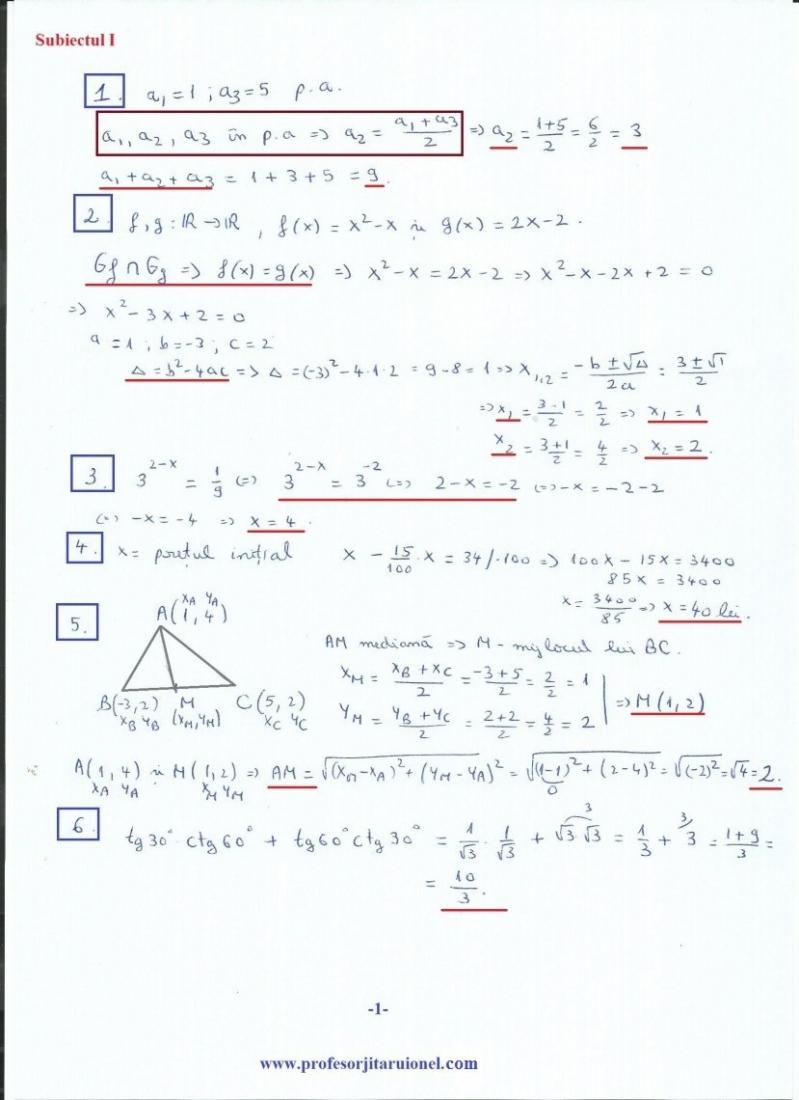 Subiectul I
1. a₁=1 ; a₃=5 p.a.
a₁, a₂, a₃ în p.a => a₂ = (a₁+a₃)/2 => a₂ = (1+5)/2 = 6/2 = 3
a₁+a₂+a₃ = 1+3+5 = 9.
2. f,g : ℝ→ℝ , f(x) = x²-x și g(x) = 2x-2.
Gf ∩ Gg => f(x) = g(x) => x²-x = 2x-2 => x²-x-2x+2 = 0
=> x²-3x+2=0
a=1 ; b=-3 ; c=2
Δ=b²-4ac => Δ=(-3)²-4·1·2 = 9-8=1 => x₁,₂ = (-b±√Δ)/2a = (3±√1)/2
=> x₁ = (3-1)/2 = 2/2 => x₁ = 1
x₂ = (3+1)/2 = 4/2 => x₂=2.
3. 3^(2-x) = 1/9 (=) 3^(2-x) = 3^(-2) (=) 2-x=-2 (=) -x=-2-2
(=) -x=-4 => x=4.
4. x = prețul inițial x - 15/100·x = 34 /·100 => 100x-15x=3400
85x = 3400
x = 3400/85 => x=40 lei.
5.
xA yA
A(1,4)
AM mediană => M - mijlocul lui BC.
xM = (xB+xC)/2 = (-3+5)/2 = 2/2 = 1
B(-3,2) M C(5,2)
xB yB (xM,yM) xC yC
=> M(1,2)
yM = (yB+yC)/2 = (2+2)/2 = 4/2 = 2
A(1,4) și M(1,2) => AM = √((xM-xA)²+(yM-yA)²) = √((1-1)²+(2-4)²) = √(-2)² = √4 = 2.
xA yA xM yM 0
6. tg30°·ctg60° + tg60°ctg30° = 1/√3 · 1/√3 + √3·√3 = 1/3 + ³⁾3 = (1+9)/3 =
3
= 10/3.
-1-
www.profesorjitaruionel.com